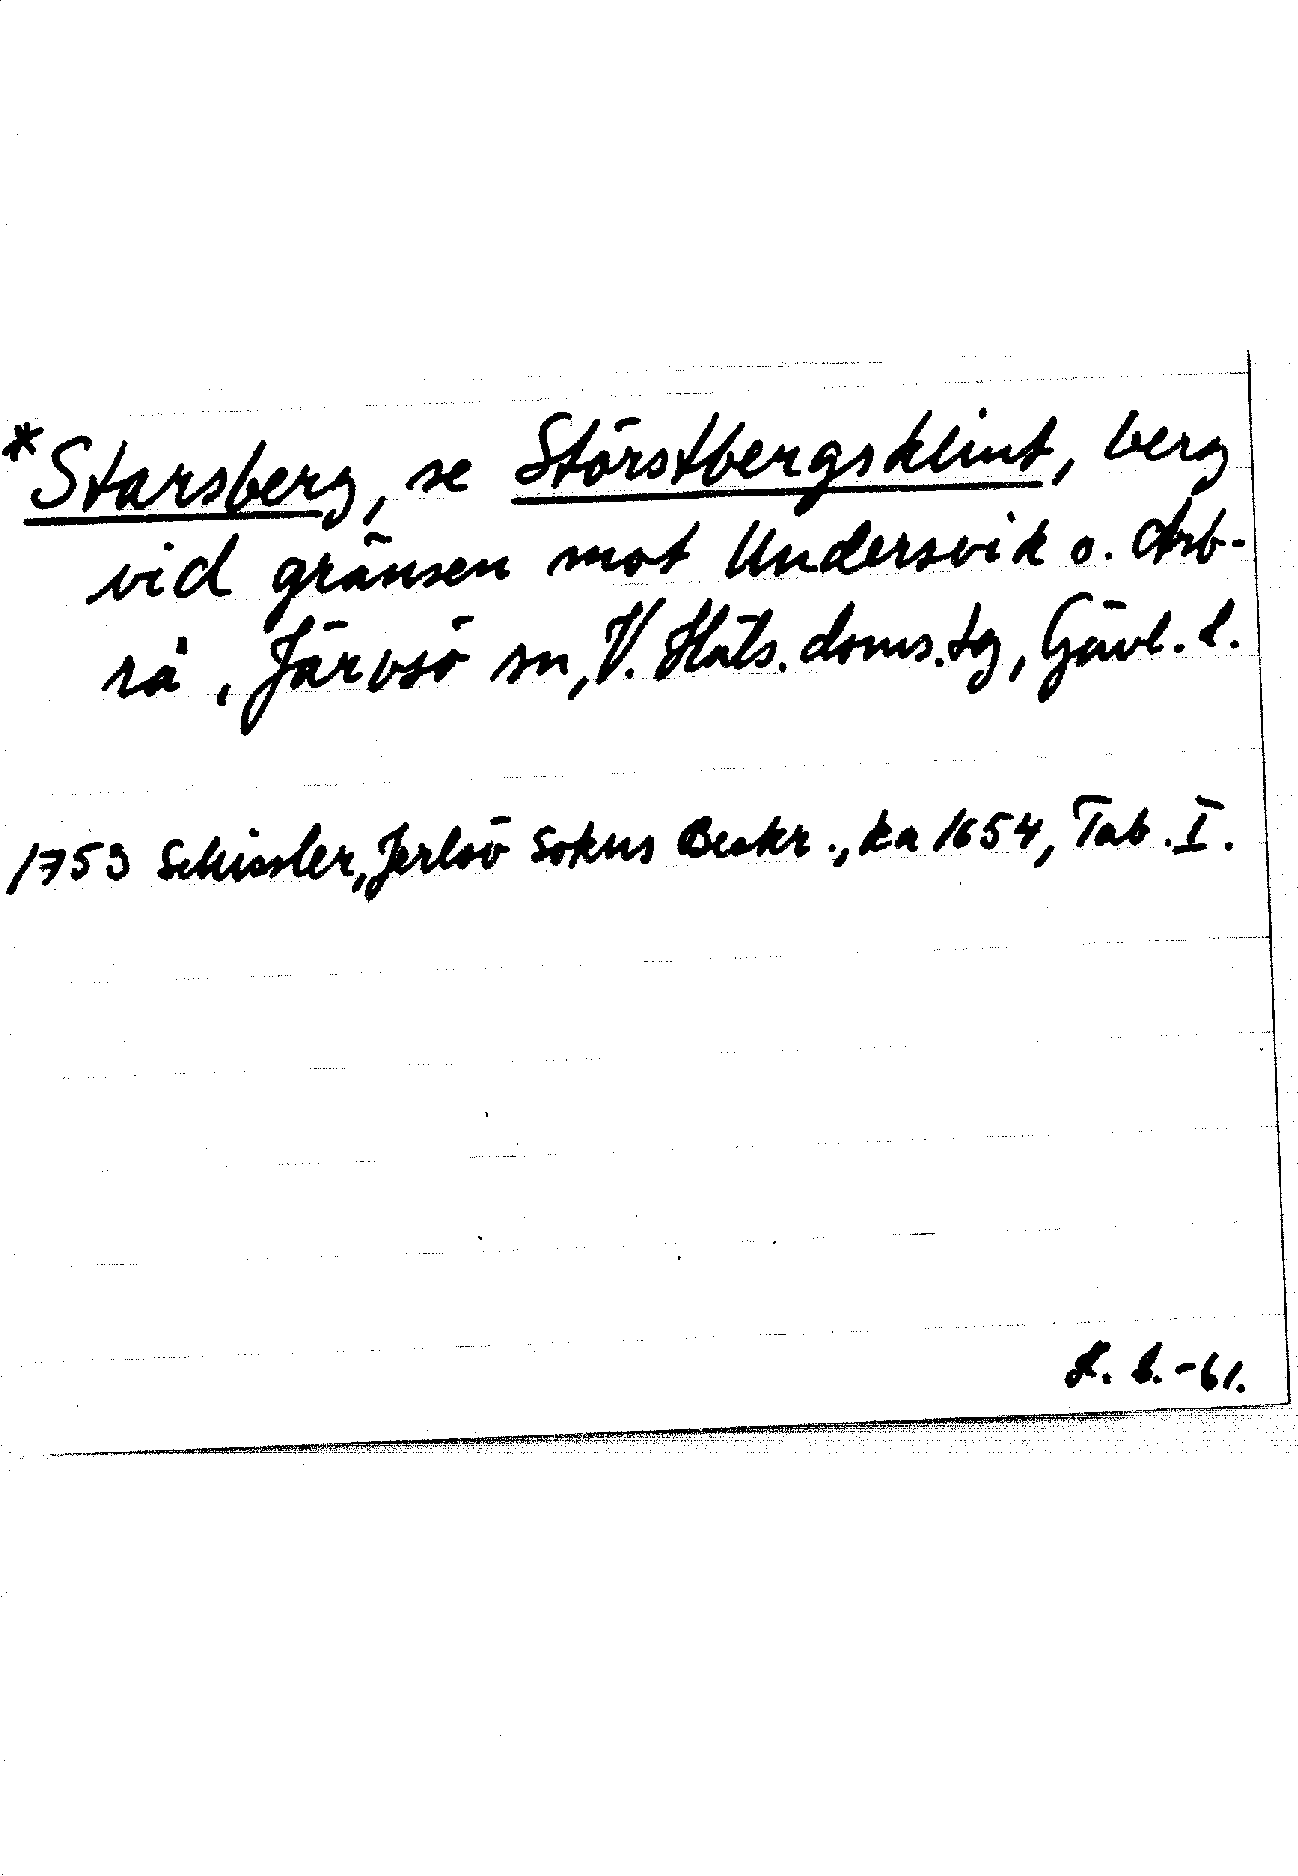 *Starsberg, se Störstbergsklint, berg
vid gränsen mot Undersvik o. Arb-
rå, Järvsö sn, V. Häls. doms. tg, Gävl. l.
1753 Schissler, Jerlsö Sokns Beskr., ka 1654, Tab. I.
L. B. -61.